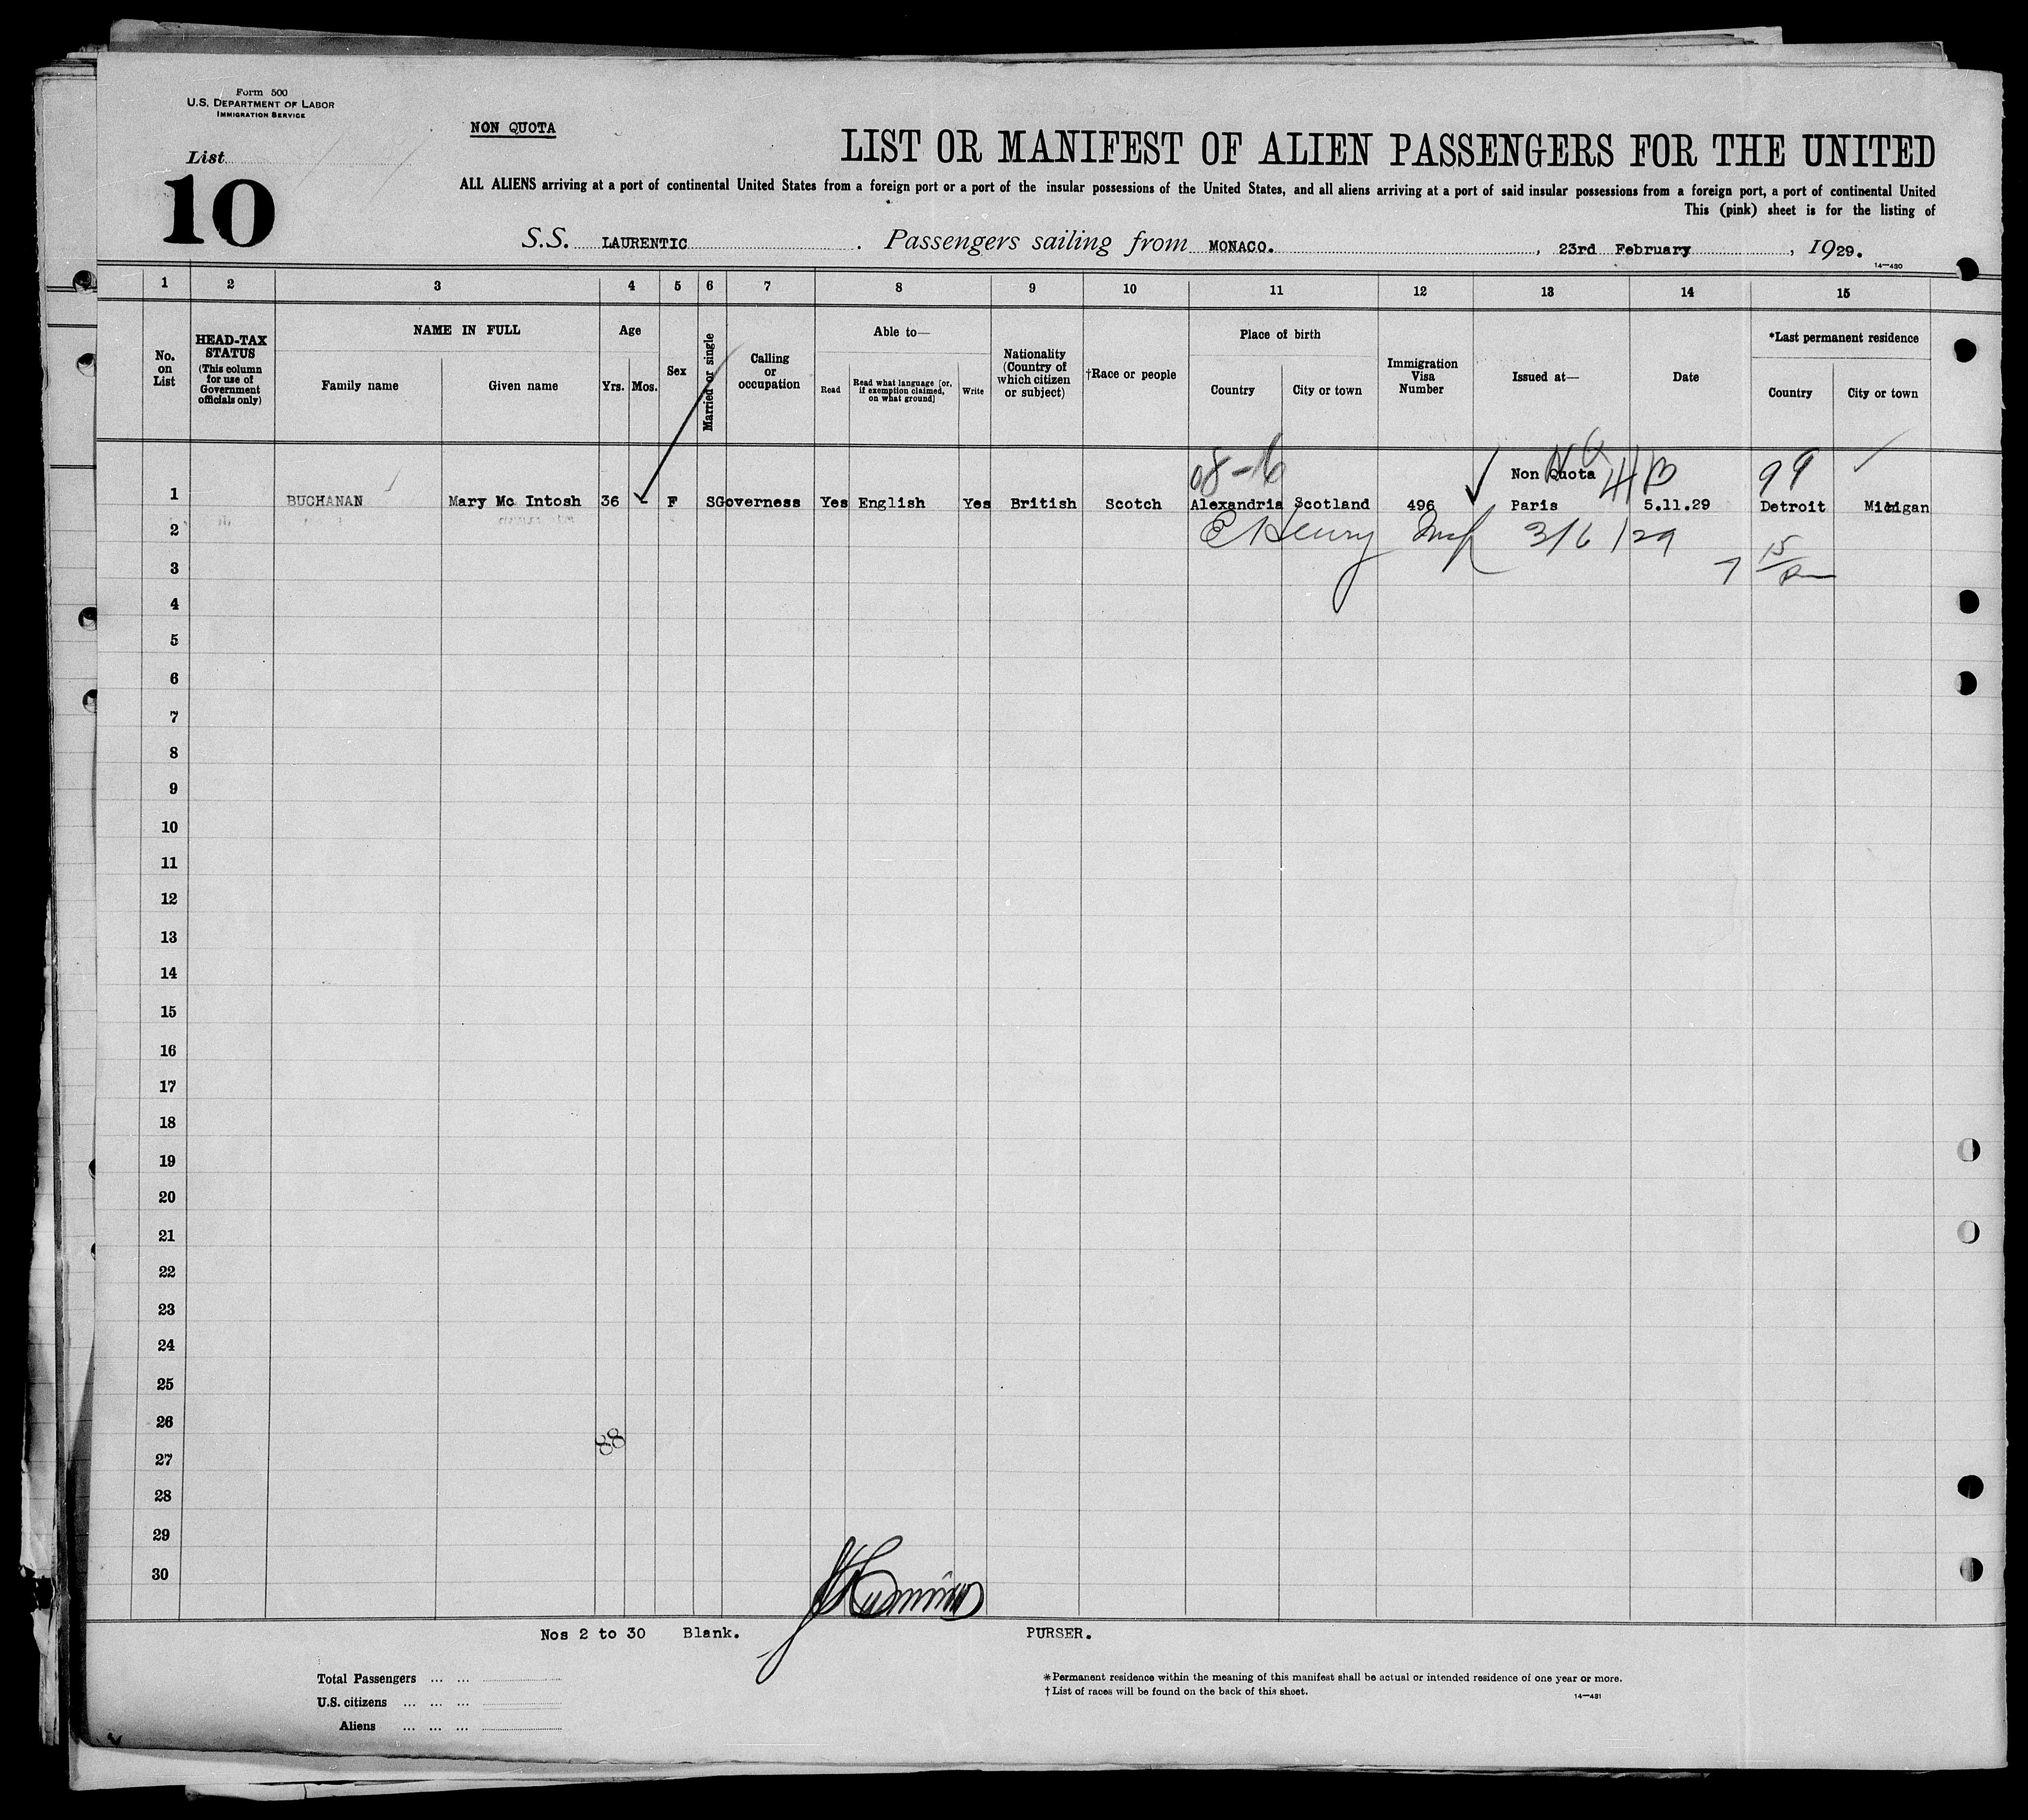 Form 500
U.S. DEPARTMENT OF LABOR
IMMIGRATION SERVICE
NON QUOTA
List
10
LIST OR MANIFEST OF ALIEN PASSENGERS FOR THE UNITED
ALL ALIENS arriving at a port of continental United States from a foreign port or a port of the insular possessions of the United States, and all aliens arriving at a port of said insular possessions from a foreign port, a port of continental United
This (pink) sheet is for the listing of
S.S. LAURENTIC. Passengers sailing from MONACO., 23rd February, 1929.
14—430
1 2 3 4 5 6 7 8 9 10 11 12 13 14 15
No. on List
HEAD-TAX STATUS (This column for use of Government officials only)
NAME IN FULL
Family name Given name
Age
Yrs. Mos.
Sex
Married or single
Calling or occupation
Able to—
Read Read what language [or, if exemption claimed, on what ground] Write
Nationality (Country of which citizen or subject)
†Race or people
Place of birth
Country City or town
Immigration Visa Number
Issued at—
Date
*Last permanent residence
Country City or town
08-6 Non Quota NQ 4B 99
1 BUCHANAN Mary Mc Intosh 36 - F S Governess Yes English Yes British Scotch Alexandria Scotland 496 Paris 5.11.29 Detroit Michigan
E Henry Insp 3/6/29
2
7 15
3
4
5
6
7
8
9
10
11
12
13
14
15
16
17
18
19
20
21
22
23
24
25
26
88
27
28
29
30
Nos 2 to 30 Blank. PURSER.
Total Passengers ... ...
U.S. citizens ... ... ...
Aliens ... ... ...
*Permanent residence within the meaning of this manifest shall be actual or intended residence of one year or more.
†List of races will be found on the back of this sheet.
14—431